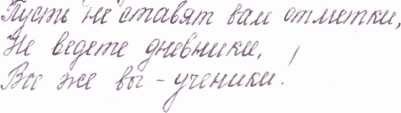 Пусть не ставят вам отметки,
Не ведете дневники,
Все же вы - ученики!